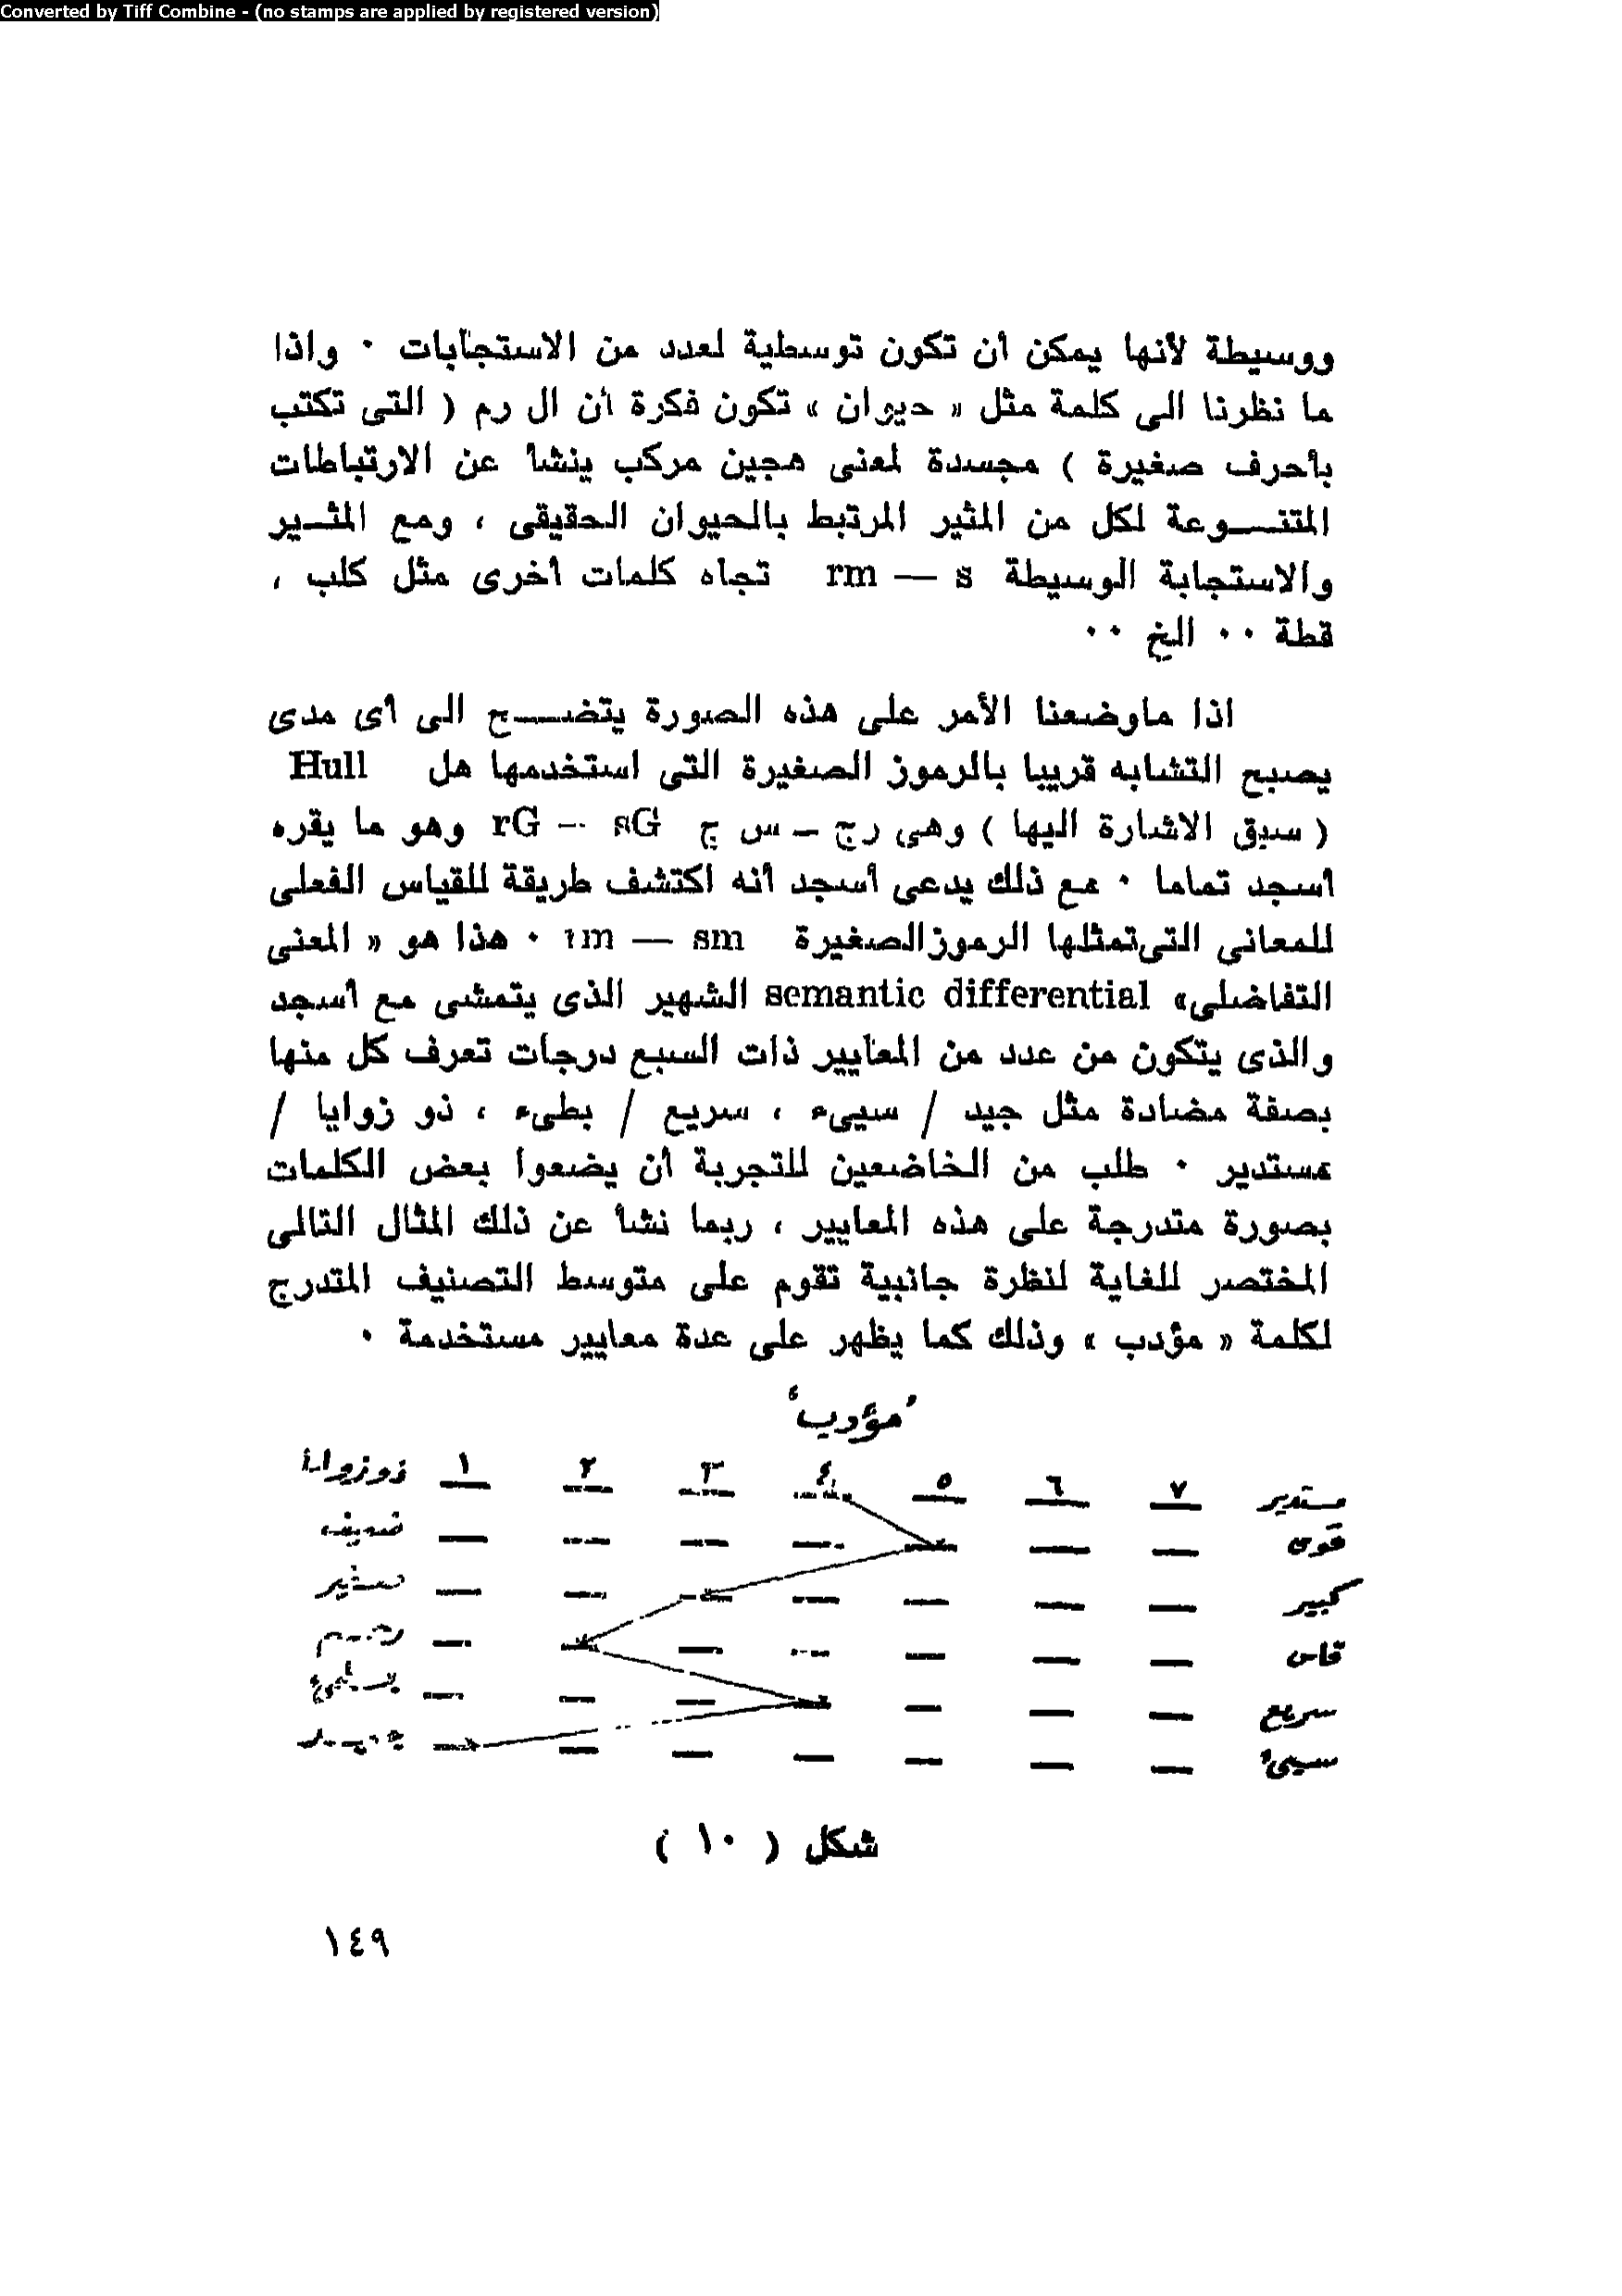 Converted by Tiff Combine - (no stamps are applied by registered version)
ووسيطة لأنها يمكن أن تكون توسطية لعدد من الاستجابات ٠ واذا
ما نظرنا الى كلمة مثل « حيوان » تكون فكرة أن ال رم ( التى تكتب
بأحرف صغيرة ) مجسدة لمعنى هجين مركب ينشأ عن الارتباطات
المتنــوعة لكل من المثير المرتبط بالحيوان الحقيقى ، ومع المثــير
والاستجابة الوسيطة rm — s تجاه كلمات أخرى مثل كلب ،
قطة ٠٠ الخ ٠٠
اذا ماوضعنا الأمر على هذه الصورة يتضــح الى أى مدى
يصبح التشابه قريبا بالرموز الصغيرة التى استخدمها هل Hull
( سبق الاشارة اليها ) وهى رج – س ج rG – sG وهو ما يقره
أسجد تماما ٠ مع ذلك يدعى أسجد أنه اكتشف طريقة للقياس الفعلى
للمعانى التى تمثلها الرموز الصغيرة rm — sm ٠ هذا هو « المعنى
التفاضلى» semantic differential الشهير الذى يتمشى مع أسجد
والذى يتكون من عدد من المعايير ذات السبع درجات تعرف كل منها
بصفة مضادة مثل جيد / سيىء ، سريع / بطىء ، ذو زوايا /
مستدير ٠ طلب من الخاضعين للتجربة أن يضعوا بعض الكلمات
بصورة متدرجة على هذه المعايير ، ربما نشأ عن ذلك المثال التالى
المختصر للغاية لنظرة جانبية تقوم على متوسط التصنيف المتدرج
لكلمة « مؤدب » وذلك كما يظهر على عدة معايير مستخدمة ٠
'مؤدب'
مستدير ٧ ٦ ٥ ٤ ٣ ٢ ١ ذو زوايا
قوى ضعيف
كبير صغير
قاس
سريع
سيىء
شكل ( ١٠ )
١٤٩